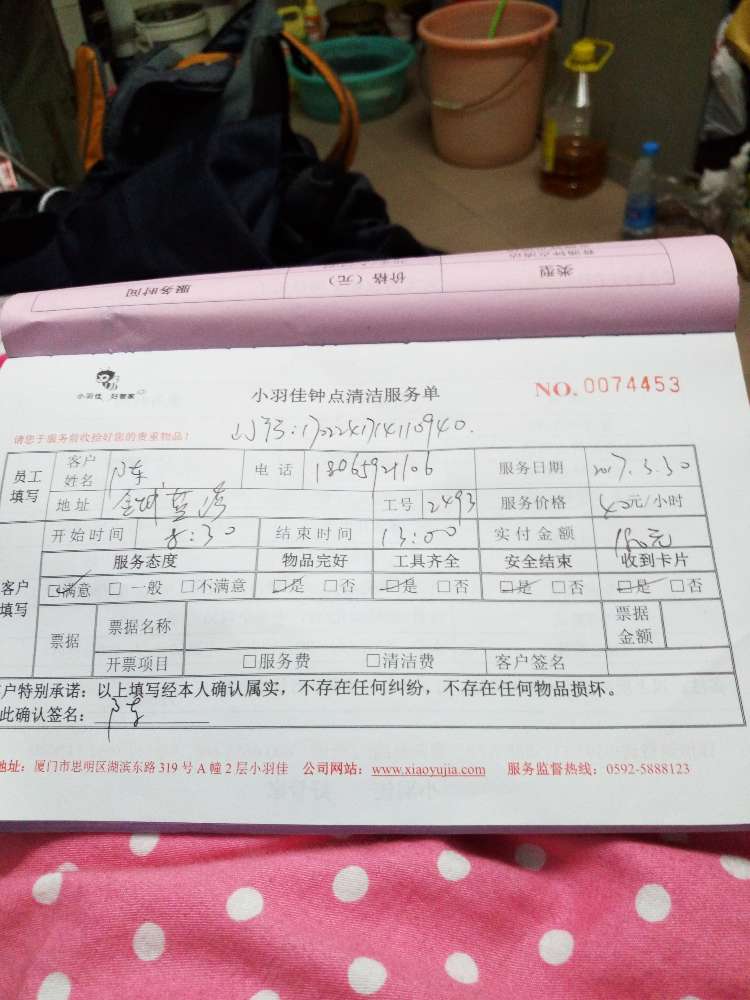 服务时间 价格（元） 类型
小羽佳 好管家
小羽佳钟点清洁服务单 NO.0074453
请您于服务前收捡好您的贵重物品！
员工填写 客户姓名 陈 电话 18065921106 服务日期 2017.3.30
地址 工号 2493 服务价格 40元/小时
客户填写 开始时间 8:30 结束时间 13:00 实付金额 180元
服务态度 物品完好 工具齐全 安全结束 收到卡片
□满意 □一般 □不满意 □是 □否 □是 □否 □是 □否 □是 □否
票据 票据名称 票据金额
开票项目 □服务费 □清洁费 客户签名
户特别承诺：以上填写经本人确认属实，不存在任何纠纷，不存在任何物品损坏。
此确认签名：陈
地址：厦门市思明区湖滨东路319号A幢2层小羽佳 公司网站：www.xiaoyujia.com 服务监督热线：0592-5888123